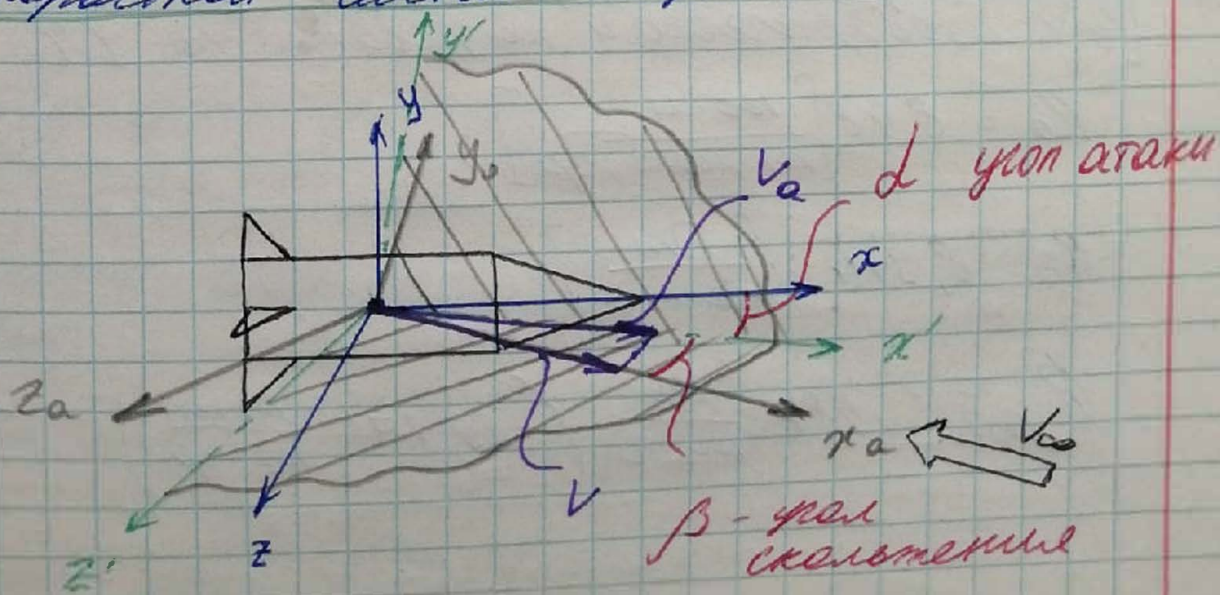 y'
y
Va
α угол атаки
x
x'
za
xa
V∞
V
β - угол
скольжения
z
z'